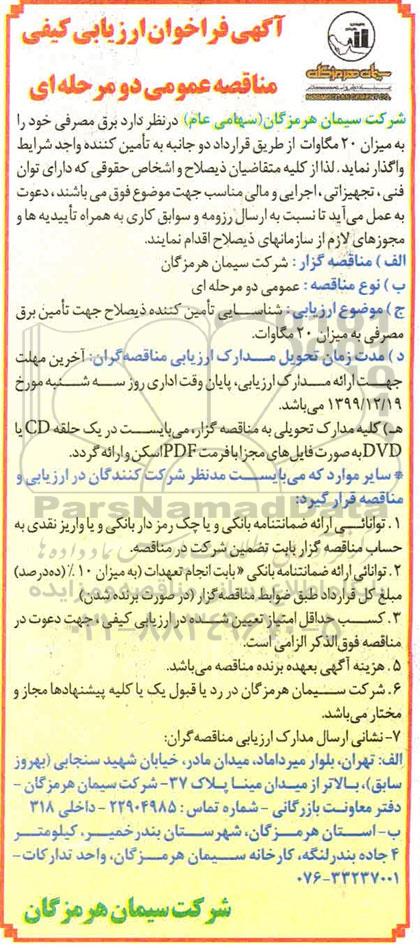 آگهی فراخوان ارزیابی کیفی
مناقصه عمومی دو مرحله ای
شرکت سیمان هرمزگان(سهامی عام) درنظر دارد برق مصرفی خود را
به میزان ۲۰ مگاوات از طریق قرارداد دو جانبه به تأمین کننده واجد شرایط
واگذار نماید. لذا از کلیه متقاضیان ذیصلاح و اشخاص حقوقی که دارای توان
فنی، تجهیزاتی، اجرایی و مالی مناسب جهت موضوع فوق می باشند، دعوت
به عمل می‌آید تا نسبت به ارسال رزومه و سوابق کاری به همراه تأییدیه ها و
مجوزهای لازم از سازمانهای ذیصلاح اقدام نمایند.
الف ) مناقصه گزار : شرکت سیمان هرمزگان
ب ) نوع مناقصه : عمومی دو مرحله ای
ج ) موضوع ارزیابی : شناسایی تأمین کننده ذیصلاح جهت تأمین برق
مصرفی به میزان ۲۰ مگاوات.
د ) مدت زمان تحویل مدارک ارزیابی مناقصه‌گران: آخرین مهلت
جهت ارائه مدارک ارزیابی، پایان وقت اداری روز سه شنبه مورخ
۱۳۹۹/۱۲/۱۹ می‌باشد.
هـ) کلیه مدارک تحویلی به مناقصه گزار، می‌بایست در یک حلقه CD یا
DVD به صورت فایل‌های مجزا با فرمت PDF اسکن و ارائه گردد.
* سایر موارد که می‌بایست مدنظر شرکت کنندگان در ارزیابی و
مناقصه قرار گیرد:
۱. توانائی ارائه ضمانتنامه بانکی و یا چک رمز دار بانکی و یا واریز نقدی به
حساب مناقصه گزار بابت تضمین شرکت در مناقصه.
۲. توانائی ارائه ضمانتنامه بانکی «بابت انجام تعهدات (به میزان ۱۰٪ (ده‌درصد)
مبلغ کل قرارداد طبق ضوابط مناقصه‌گزار (در صورت برنده شدن)
۳. کسب حداقل امتیاز تعیین شده در ارزیابی کیفی، جهت دعوت در
مناقصه فوق‌الذکر الزامی است.
۵. هزینه آگهی بعهده برنده مناقصه می‌باشد.
۶. شرکت سیمان هرمزگان در رد یا قبول یک یا کلیه پیشنهادها مجاز و
مختار می‌باشد.
۷- نشانی ارسال مدارک ارزیابی مناقصه‌گران:
الف: تهران، بلوار میرداماد، میدان مادر، خیابان شهید سنجابی (بهروز
سابق)، بالاتر از میدان مینا پلاک ۳۷- شرکت سیمان هرمزگان -
دفتر معاونت بازرگانی - شماره تماس : ۲۲۹۰۴۹۸۵ - داخلی ۳۱۸
ب- استان هرمزگان، شهرستان بندرخمیر، کیلومتر
۴ جاده بندرلنگه، کارخانه سیمان هرمزگان، واحد تدارکات-
۰۷۶-۳۳۲۳۷۰۰۱
شرکت سیمان هرمزگان
ParsNamadData